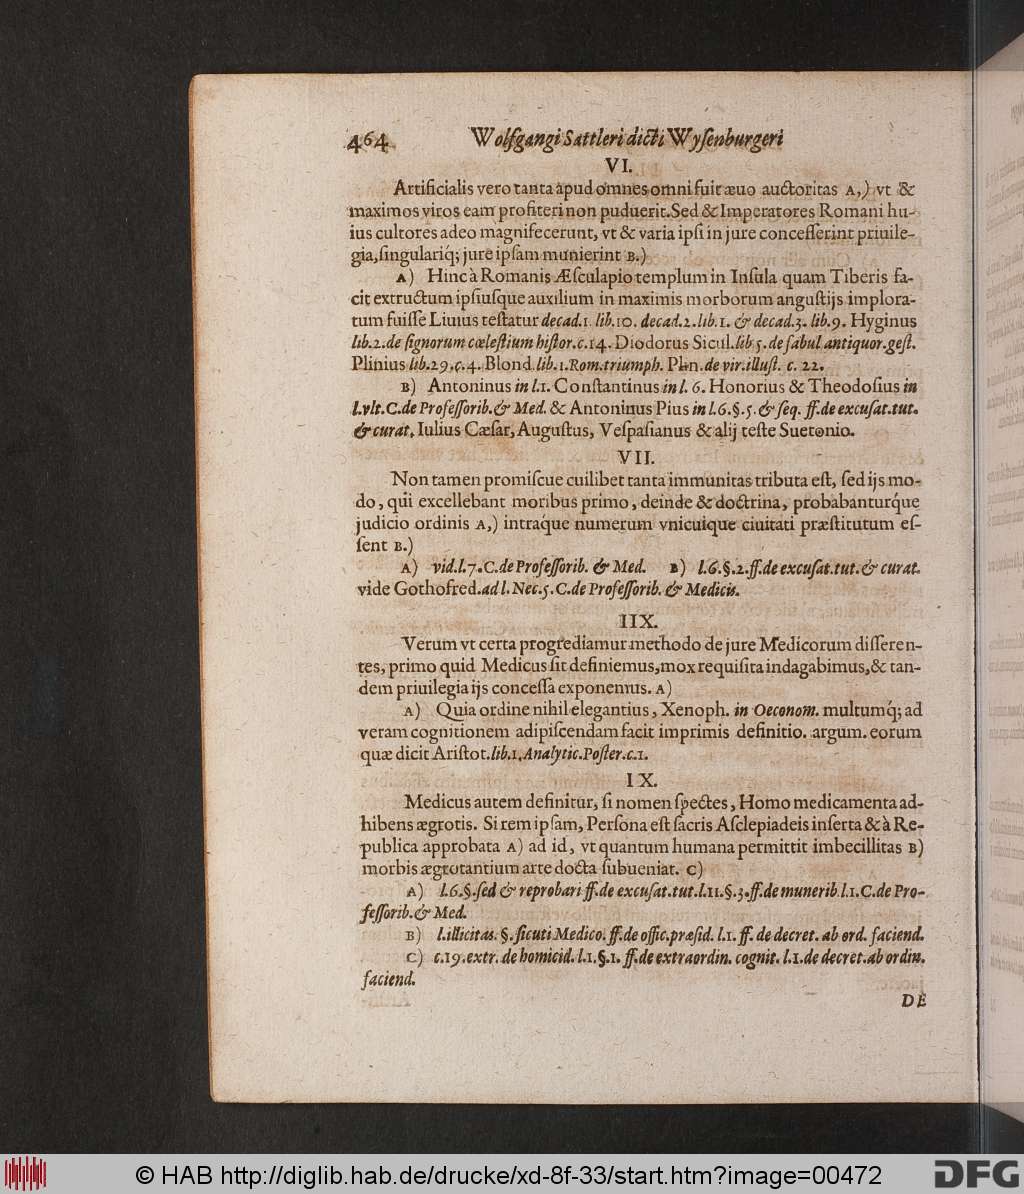 464 Wolfgangi Sattleri dicti Wyſenburgeri
VI.
Artificialis vero tanta apud omnes omni fuit æuo auctoritas A,) vt &
maximos viros eam profiteri non puduerit. Sed & Imperatores Romani hu-
ius cultores adeo magnifecerunt, vt & varia ipſi in jure conceſſerint priuile-
gia, ſingulariq́; jure ipſam munierint B.)
A) Hinc à Romanis Æſculapio templum in Inſula quam Tiberis fa-
cit extructum ipſiuſque auxilium in maximis morborum anguſtijs implora-
tum fuiſſe Liuius teſtatur decad.1. lib.10. decad.2.lib.1. & decad.3. lib.9. Hyginus
lib.2.de ſignorum cœleſtium hiſtor.c.14. Diodorus Sicul.lib.5.de fabul antiquor.geſt.
Plinius lib.29.c.4. Blond.lib.1.Rom.triumph. Plin.de vir.illuſt. c. 22.
B) Antoninus in l.1. Conſtantinus in l. 6. Honorius & Theodoſius in
l.vlt.C.de Profeſſorib.& Med. & Antoninus Pius in l.6.§.5.& ſeq. ff.de excuſat.tut.
& curat. Iulius Cæſar, Auguſtus, Veſpaſianus & alij teſte Suetonio.
VII.
Non tamen promiſcue cuilibet tanta immunitas tributa eſt, ſed ijs mo-
do, qui excellebant moribus primo, deinde & doctrina, probabanturq́ue
judicio ordinis A,) intraq́ue numerum vnicuique ciuitati præſtitutum eſ-
ſent B.)
A) vid.l.7.C.de Profeſſorib. & Med. B) l.6.§.2.ff.de excuſat.tut.& curat.
vide Gothofred.ad l. Nec.5.C.de Profeſſorib. & Medicis.
IIX.
Verum vt certa progrediamur methodo de jure Medicorum diſſeren-
tes, primo quid Medicus ſit definiemus, mox requiſita indagabimus, & tan-
dem priuilegia ijs conceſſa exponemus. A)
A) Quia ordine nihil elegantius, Xenoph. in Oeconom. multumq́; ad
veram cognitionem adipiſcendam facit imprimis definitio. argum. eorum
quæ dicit Ariſtot.lib.1.Analytic.Poſter.c.1.
IX.
Medicus autem definitur, ſi nomen ſpectes, Homo medicamenta ad-
hibens ægrotis. Si rem ipſam, Perſona eſt ſacris Aſclepiadeis inſerta & à Re-
publica approbata A) ad id, vt quantum humana permittit imbecillitas B)
morbis ægrotantium arte docta ſubueniat. C)
A) l.6.§.ſed & reprobari ff.de excuſat.tut.l.11.§.3.ff.de munerib.l.1.C.de Pro-
feſſorib.& Med.
B) l.illicitas. §.ſicuti Medico.ff.de offic.præſid. l.1. ff. de decret. ab ord. faciend.
C) c.19.extr. de homicid.l.1.§.1. ff.de extraordin. cognit. l.1.de decret.ab ordin.
faciend.
DE
© HAB http://diglib.hab.de/drucke/xd-8f-33/start.htm?image=00472
DFG